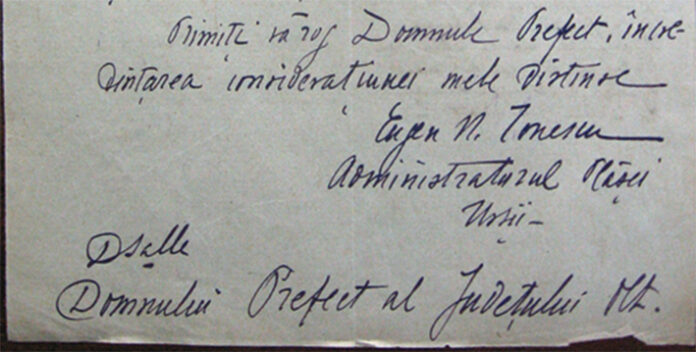 Primiți vă rog Domnule Prefect, încre-
dințarea considerațiunei mele distinse
Eugen N. Ionescu
Administratorul Plășei
Urșii -
Dsalle
Domnului Prefect al Județului Olt.